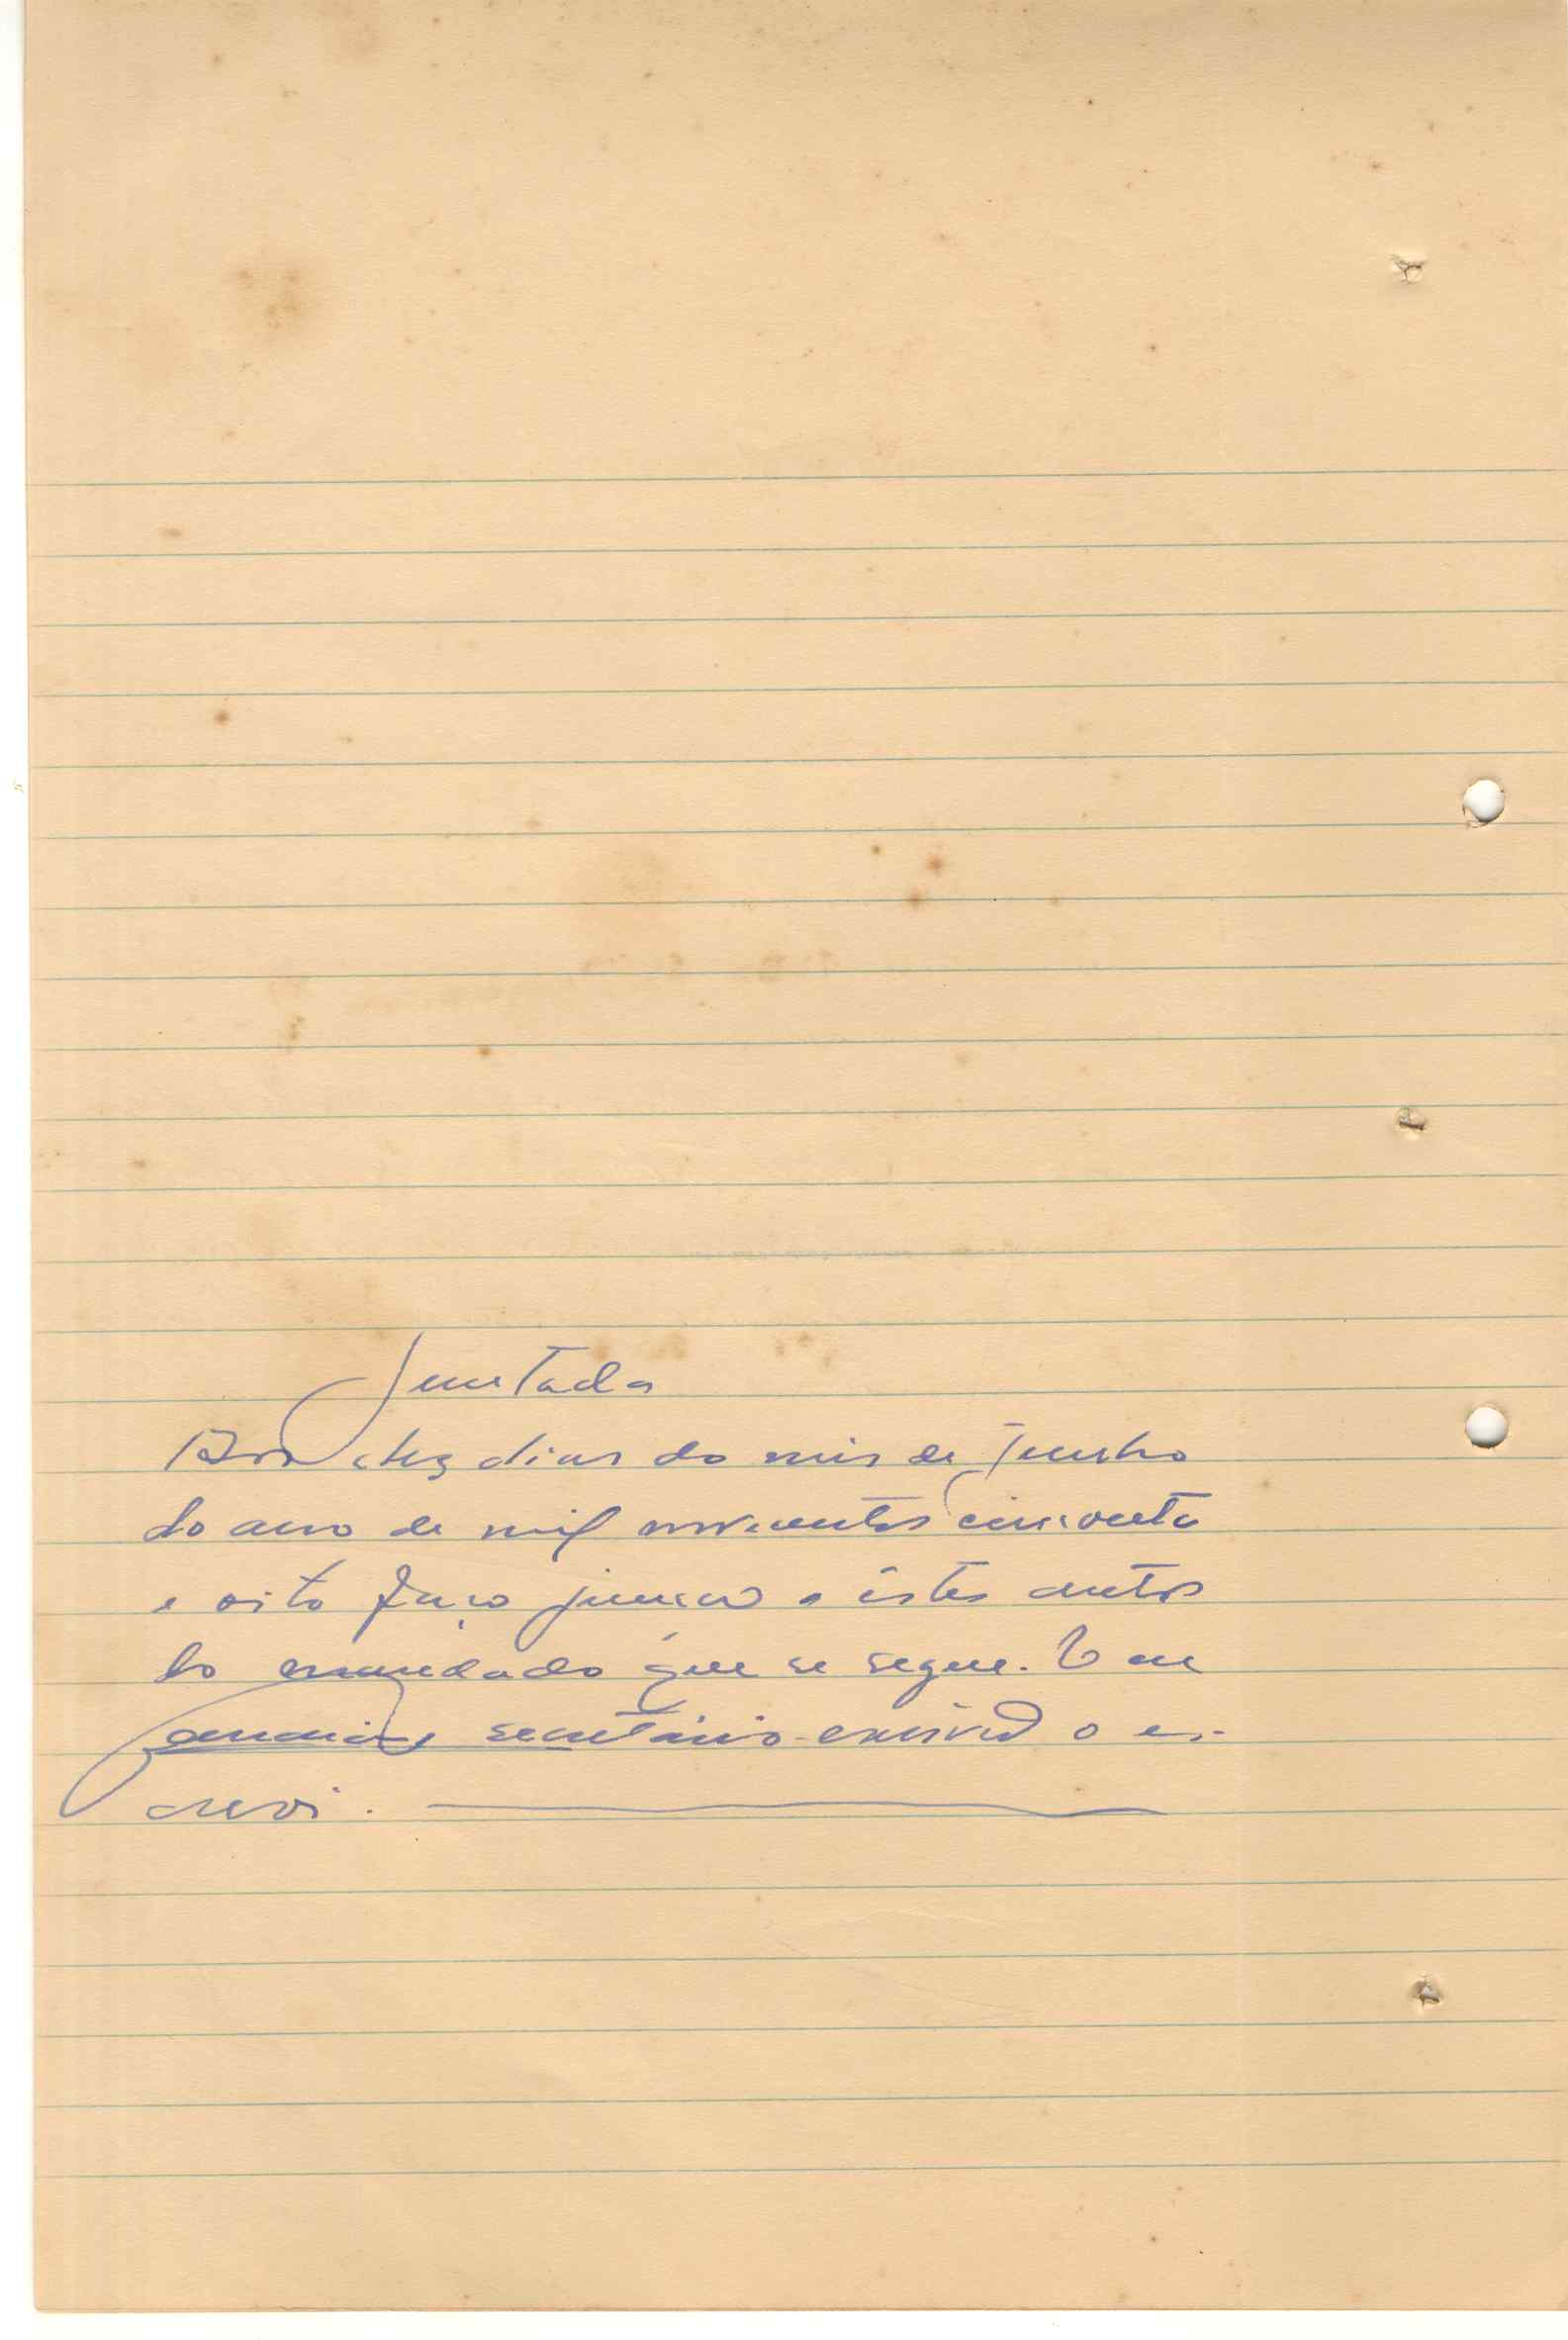 Juntada
Aos dez dias do mês de Junho
do ano de mil novecentos cincoenta
e oito faço junção a êstes autos
do mandado que se segue. Eu
secretário escrivão o es-
crevi.